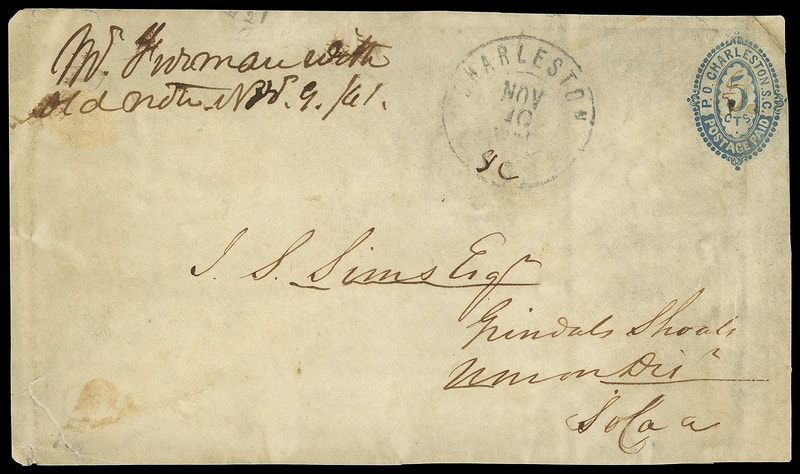 Mr. Furman with
old note Nov. 9. /61.
CHARLESTON
NOV
10
SC
P.O. CHARLESTON S.C.
5
CTS
POSTAGE PAID
J. S. Sims Esqr
Grindals Shoals
Union Disr
So Ca